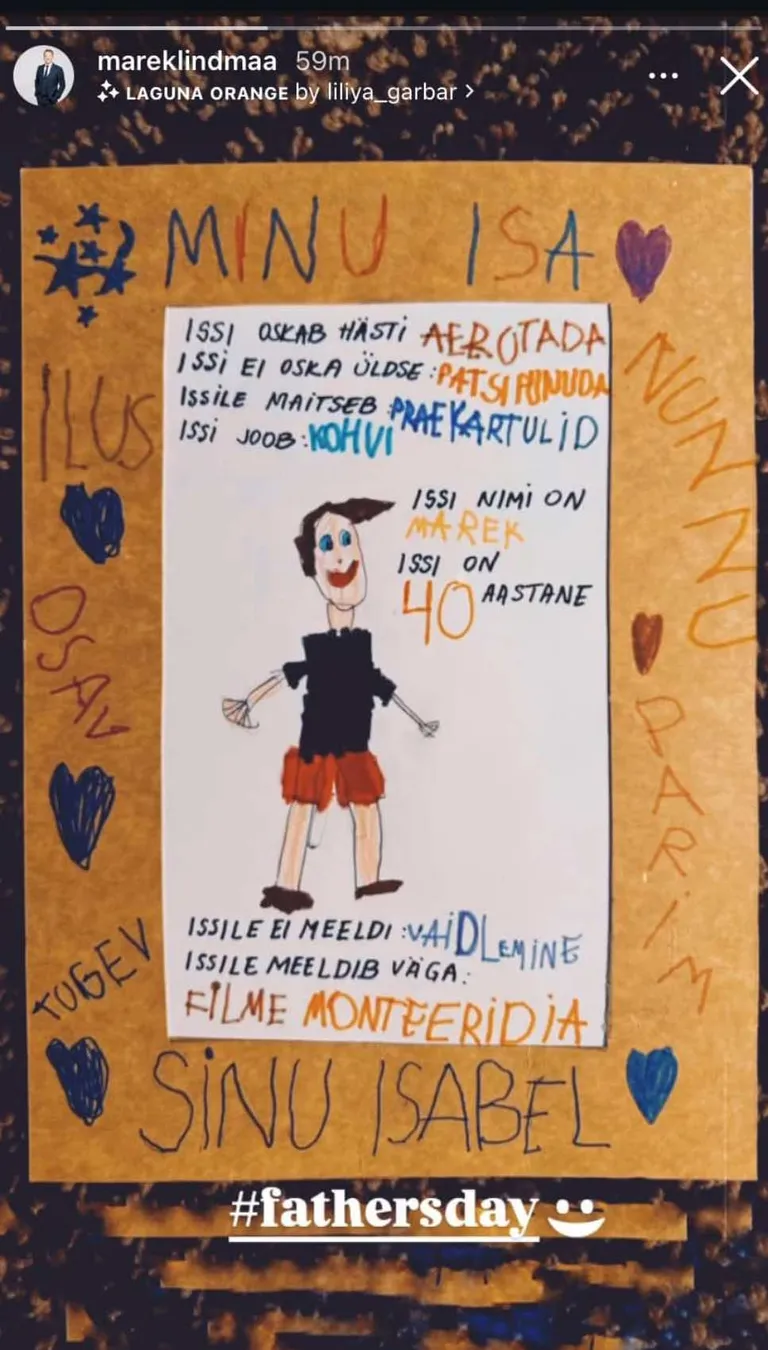 mareklindmaa 59m
LAGUNA ORANGE by liliya_garbar >
MINU ISA
ISSI OSKAB HÄSTI AEROTADA
ISSI EI OSKA ÜLDSE: PATSI PUNUDA
ISSILE MAITSEB: PRAEKARTULID
ISSI JOOB: KOHVI
ISSI NIMI ON
MAREK
ISSI ON
40 AASTANE
ISSILE EI MEELDI: VAIDLEMINE
ISSILE MEELDIB VÄGA:
FILME MONTEERIDIA
ILUS
OSAV
TUGEV
NUNNU
PARIM
SINU ISABEL
#fathersday